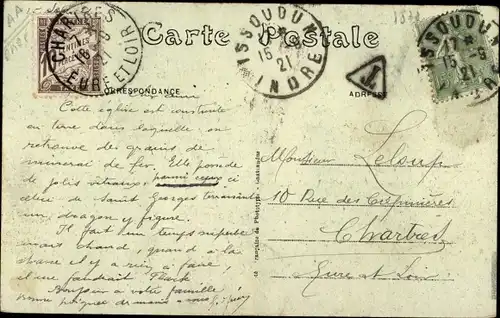 Carte Postale
CORRESPONDANCE
ADRESSE
CHARTRES
EURE ET LOIR
ISSOUDUN
15 -9
21
INDRE
T
ISSOUDUN
17
15 -9
21
CENTIMES
Cette église est construite
en terre dans laquelle on
retrouve des grains de
minerai de fer. Elle possède
de jolis vitraux, parmi ceux ci
celui de Saint Georges terrassant
un dragon y figure.
Il fait un temps superbe
mais chaud, quand à la
chasse il y a rien à faire,
Bonjour à votre famille
Bonne poignée de mains
Monsieur Leloup
10 Rue des Carmélites
Chartres
Eure et Loir